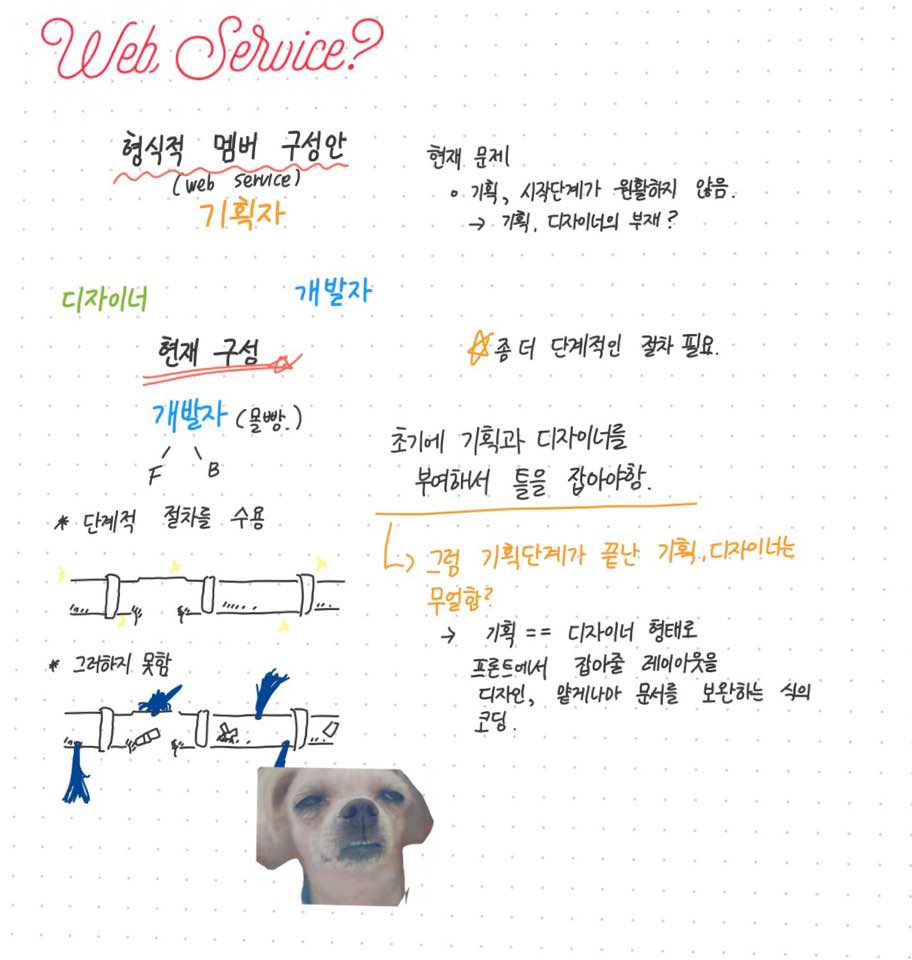 Web Service?
형식적 멤버 구성안
(web service)
기획자
디자이너
개발자
현재 구성
개발자 (몰빵.)
F B
* 단계적 절차를 수용
* 그러하지 못함
현재 문제
기획, 시작단계가 원활하지 않음.
→ 기획, 디자이너의 부재?
☆ 좀 더 단계적인 절차 필요.
초기에 기획과 디자이너를
부여해서 틀을 잡아야함.
↳ 그럼 기획단계가 끝난 기획, 디자이너는
무얼함?
→ 기획 == 디자이너 형태로
프론트에서 잡아줄 레이아웃을
디자인, 얕게나마 문서를 보완하는 식의
코딩.